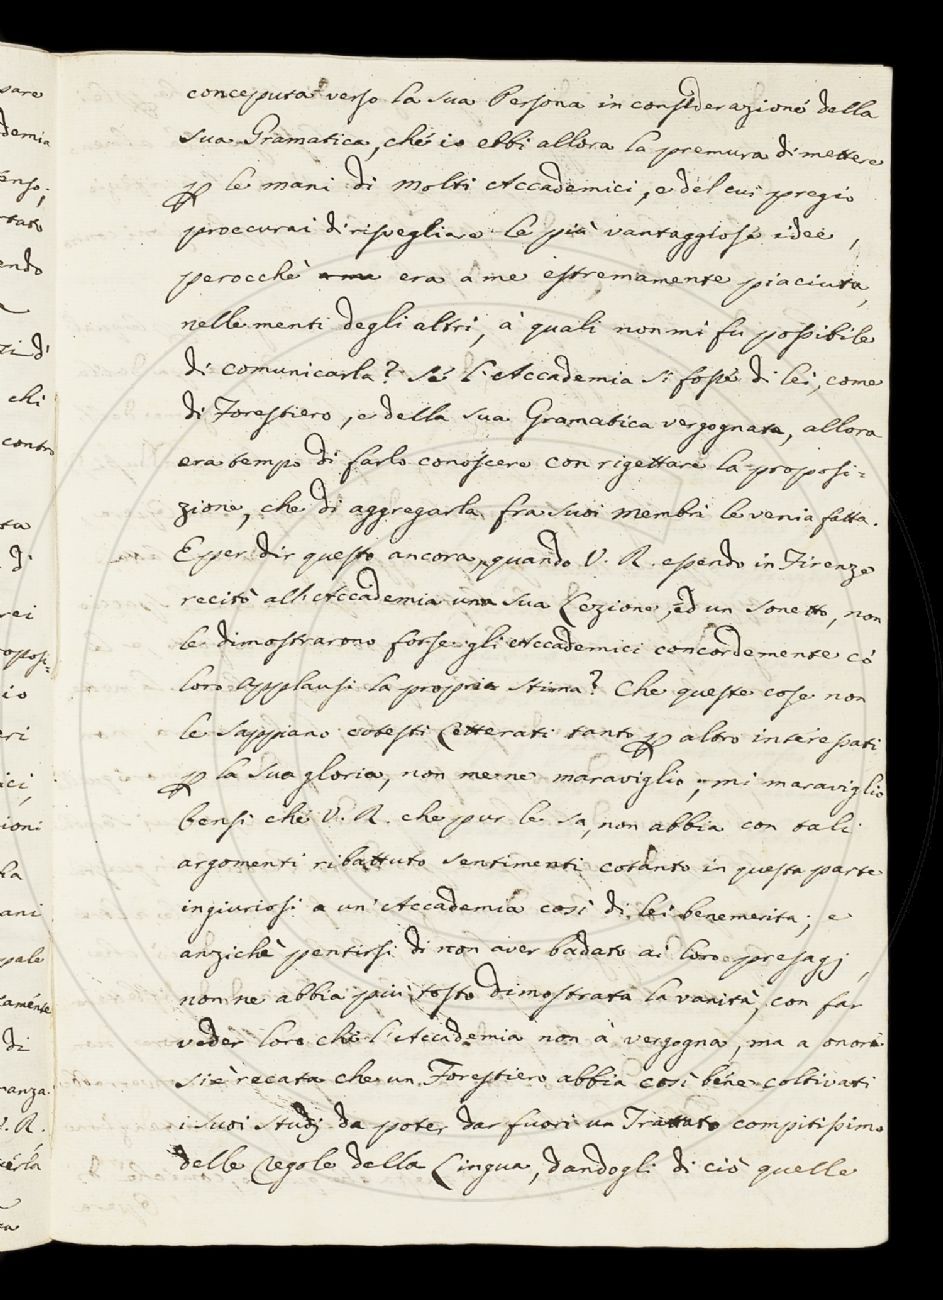 conceputa verso la sua Persona in considerazione della
sua Gramatica, che io ebbi allora la premura di mettere
p le mani di molti Accademici, e del cui pregio
proccurai di risvegliare le più vantaggiose idee,
perocchè era a me estremamente piaciuta,
nelle menti degli altri, à quali non mi fu possibile
di comunicarla? Se l'Accademia si fosse di lei, come
di Forestiero, e della sua Gramatica vergognata, allora
era tempo di farlo conoscere con rigettare la proposi=
zione, che di aggregarla fra suoi membri le venia fatta.
E per dir questo ancora, quando V. R. essendo in Firenze
recitò all'Accademia una sua Lezione, ed un Sonetto, non
le dimostrarono forse gli Accademici concordemente có
loro applausi la propria stima? Che queste cose non
le sappiano cotesti Letterati tanto p altro interessati
p la sua gloria, non me ne maraviglio; mi maraviglio
bensi che V. R. che pur le sa, non abbia con tali
argomenti ribattuto sentimenti cotanto in questa parte
ingiuriosi a un'Accademia così di lei benemerita; e
anzichè pentirsi di non aver badato ai loro presagj,
non ne abbia più tosto dimostrata la vanità, con far
veder loro che l'Accademia non à vergogna, ma a onore
si è recata che un Forestiero abbia così bene coltivati
i suoi studj da poter dar fuori un Trattato compitissimo
delle Regole della Lingua, dandogli di ciò quelle
pare
demia
enso;
rtato
endo
di
chi
contro
ta
di
rei
oposi=
io
eri
ici,
ioni
ha
ani
pale
tamente
di
ranza.
V. R.